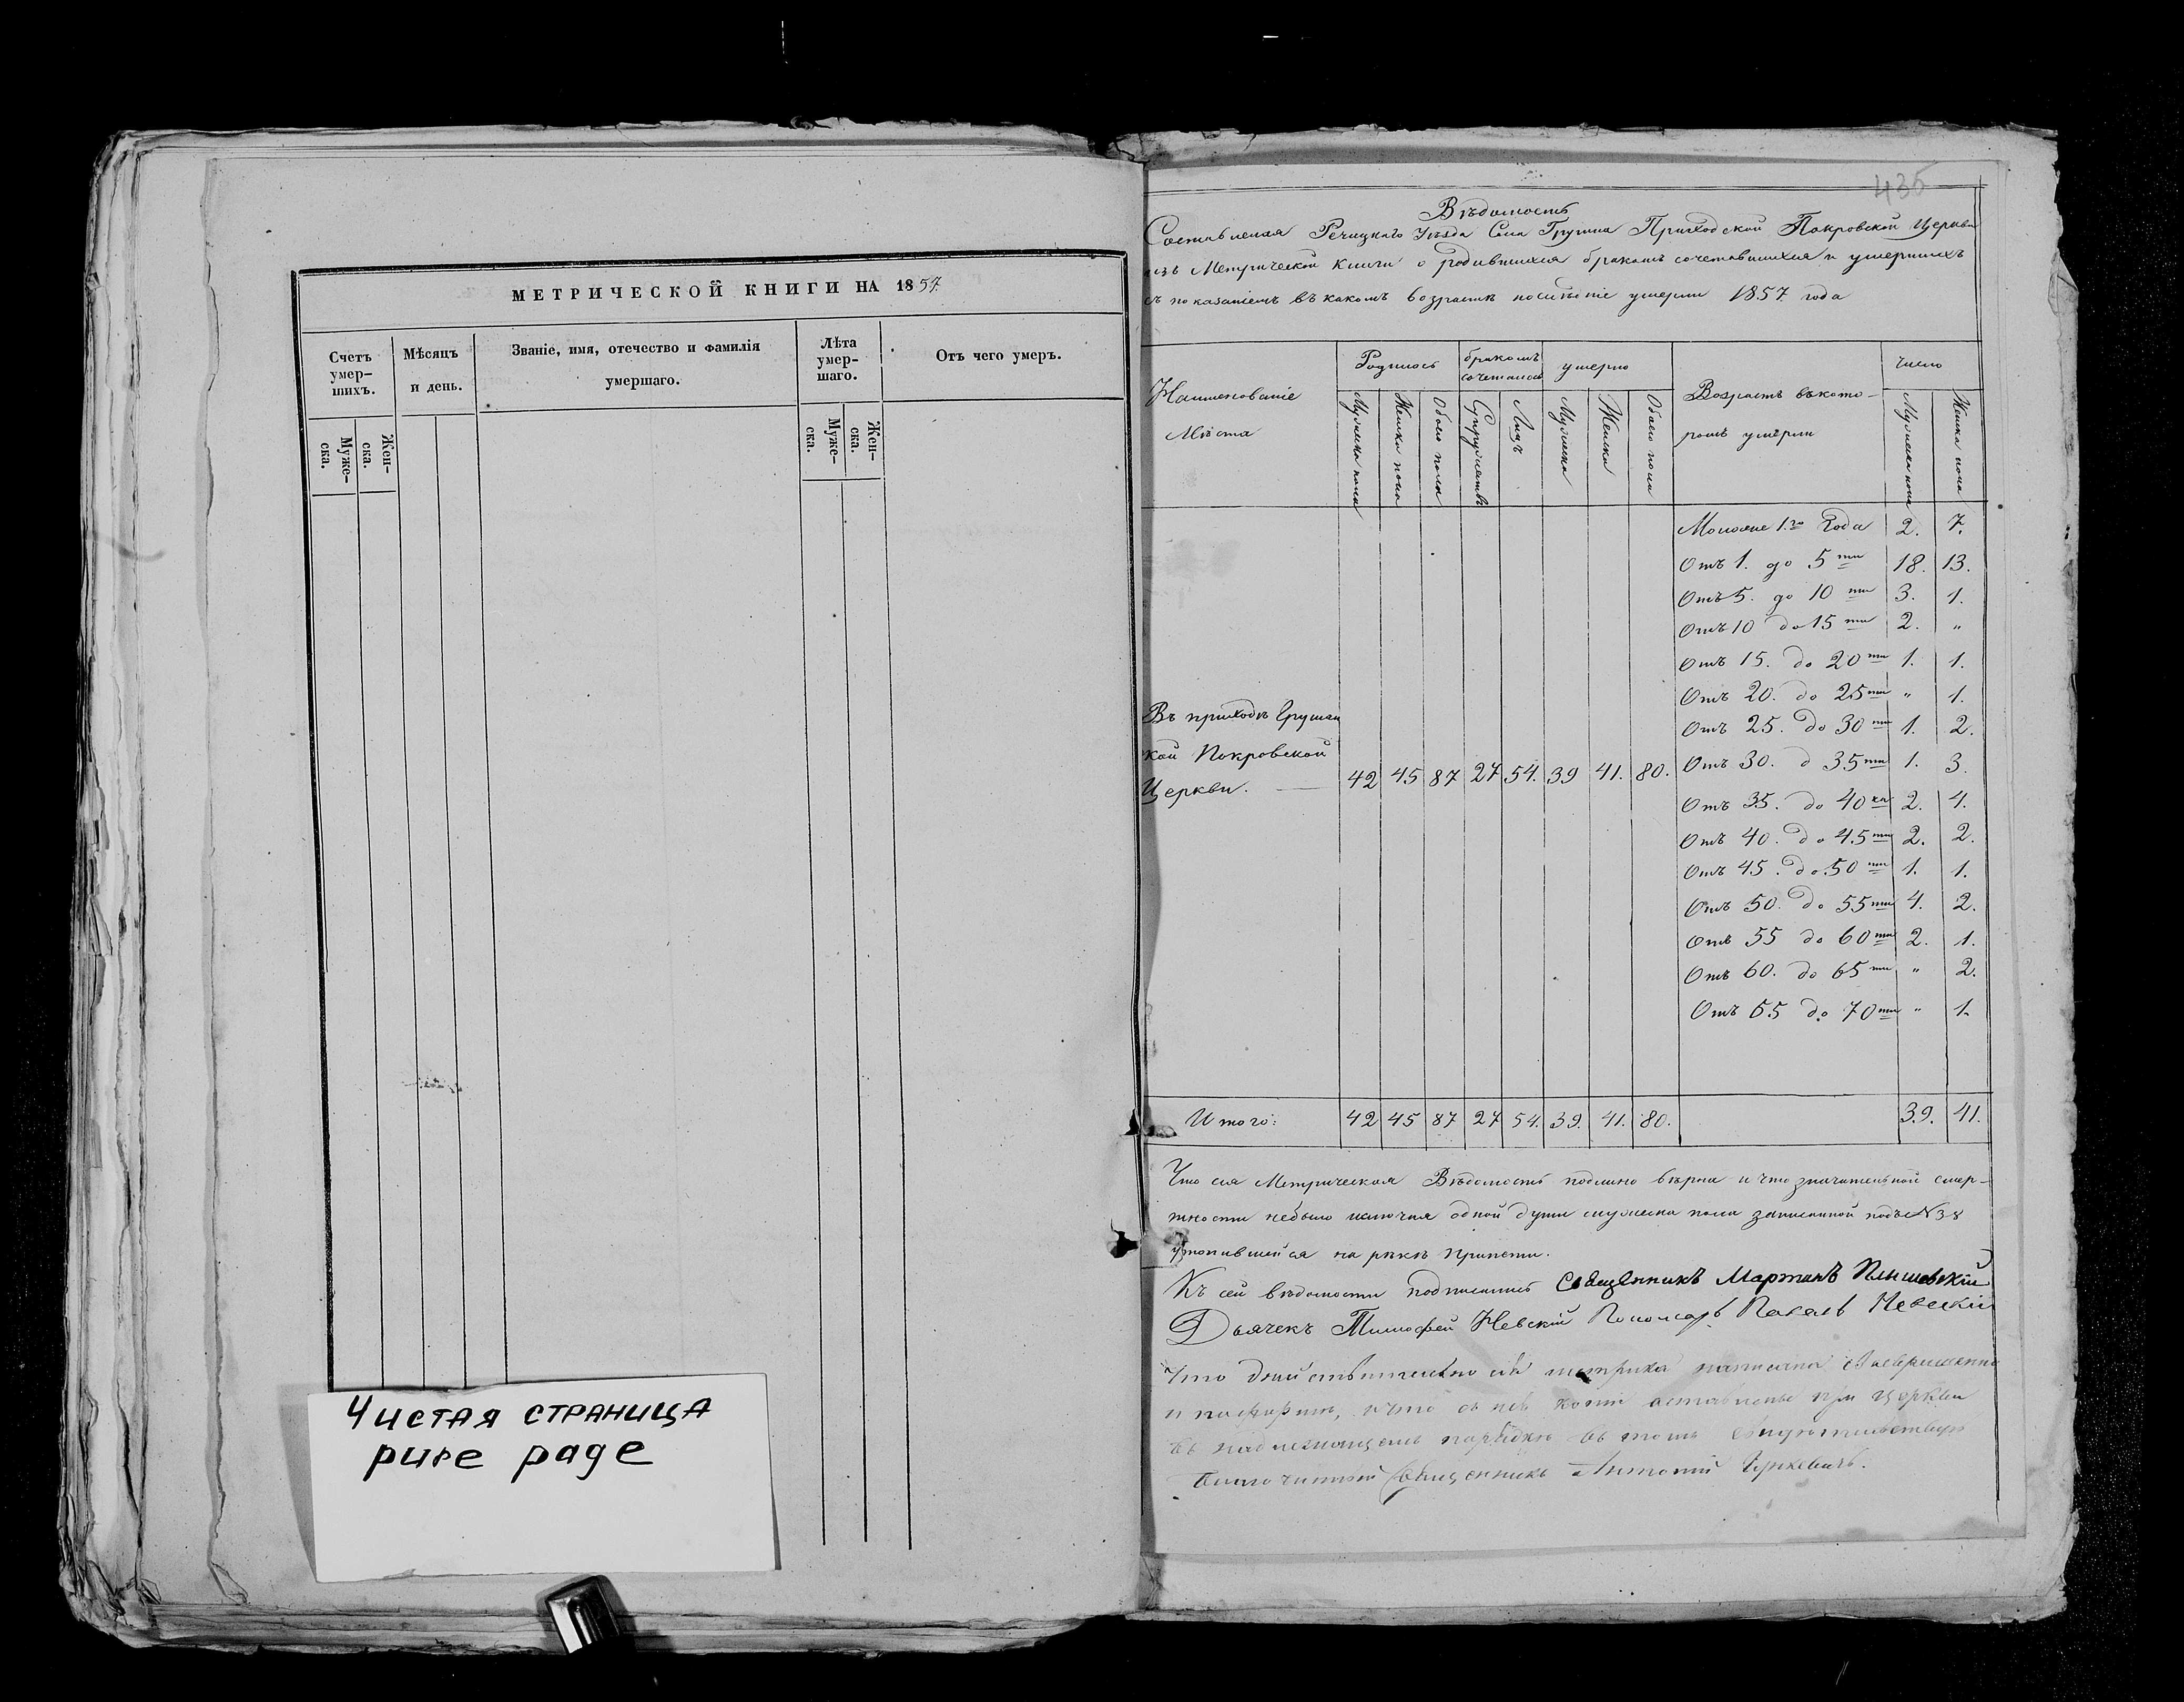 МЕТРИЧЕСКОЙ КНИГИ НА 1857.
Счетъ умер-шихъ. Мѣсяцъ и день. Званіе, имя, отечество и фамилія умершаго. Лѣта умер-шаго. Отъ чего умеръ.
Муже-ска. Жен-ска. Муже-ска. Жен-ска.
Чистая страница
pure page
435
Вѣдомость
Составленая Речицкаго Уѣзда Села Грушна Приходской Покровской Церкви
изъ Метрической Книги о родившихся бракомъ сочетавшихся и умершихъ
съ показаніемъ въ какомъ возрастѣ послѣдніе умерли 1857 года
Наименованіе Мѣста Родилось бракомъ сочеталось умерло Возрастъ въ кото-ромъ умерли Число
Мужеска пола Женска пола Обоего пола Супружествъ Лицъ Мужеска Женска Обоего пола Мужеска пола Женска пола
Моложе 1.го Года 2. 7.
Отъ 1. до 5ти 18. 13.
Отъ 5. до 10ти 3. 1.
Отъ 10 до 15ти 2. "
Отъ 15. до 20ти 1. 1.
Отъ 20. до 25ти " 1.
Отъ 25. до 30ти 1. 2.
Отъ 30. д 35ти 1. 3.
Отъ 35. до 40ка 2. 4.
Отъ 40. до 45ти 2. 2.
Отъ 45. до 50ти 1. 1.
Отъ 50. до 55ти 4. 2.
Отъ 55 до 60ти 2. 1.
Отъ 60. до 65ти " 2.
Отъ 65 до 70ти " 1.
Въ приходѣ Грушан
кой Покровской
Церкви. 42 45 87 27 54. 39 41. 80.
Итого: 42 45 87 27 54. 39. 41. 80. 39. 41.
Что сія Метрическая Вѣдомость подлино вѣрна и что значительной смер-
тности небыло исключая одной души мужеска пола записанной подъ №38
утопившейся на рѣкѣ Припети.
Къ сей вѣдомости подписались Священникъ Мартинъ
Дьячекъ Тимофей Невскій Пономарь Павелъ Невскій
Что дѣйствительно сія метрика написана
и что съ нея копія оставлена при Церкви
въ надлежащемъ порядкѣ въ томъ свидѣтельствую
Благочинный Священникъ Антоній